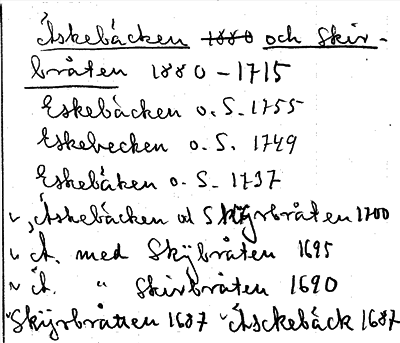 Äskebäcken 1880 och Skir-
bråten 1880-1715
Eskebäcken o. S. 1755
Eskebecken o. S. 1749
Eskebäken o. S. 1737
Äskebäcken ol Skyrbråten 1700
Ä. med Skÿbråten 1695
Ä. " Skirbråten 1690
Skÿrbråtten 1687 Äsckebäck 1687